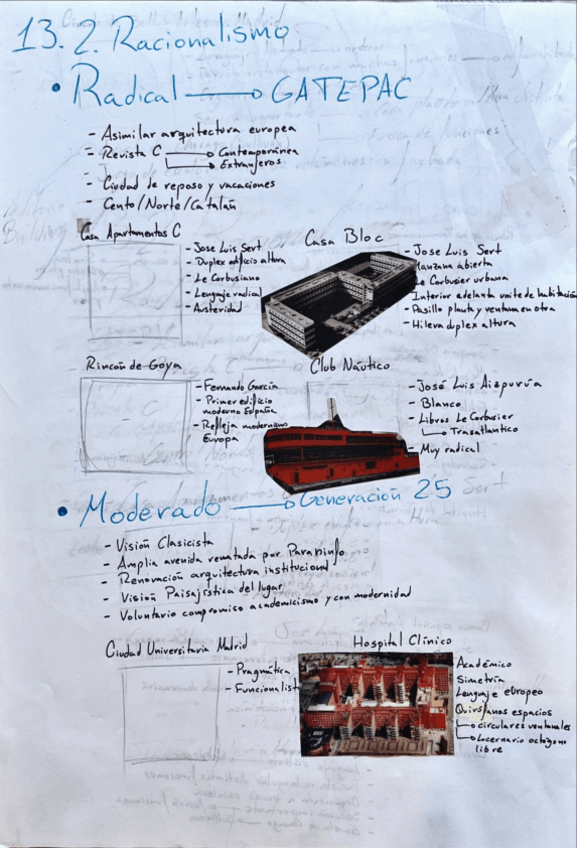 13.2. Racionalismo
• Radical → GATEPAC
- Asimilar arquitectura europea
- Revista C → Contemporánea
→ Extranjeros
- Ciudad de reposo y vacaciones
- Cento/Norte/Catalán
Casa Apartamentos C
- Jose Luis Sert
- Duplex edificio altura
- Le Corbusiano
- Lenguaje radical
- Austeridad
Casa Bloc
- Jose Luis Sert
Manzana abierta
Le Corbusier urbana
Interior adelanta unite de habitación
- Pasillo planta y ventana en otra
- Hilera duplex altura
Rincón de Goya
- Fernando García
- Primer edificio
moderno España
- Refleja modernismo
Europa
Club Náutico
- José Luis Aizpurúa
- Blanco
- Libros Le Corbusier
→ Trasatlantico
- Muy radical
• Moderado → Generación 25
- Visión Clasicista
- Amplia avenida rematada por Paraninfo
- Renovación arquitectura institucional
- Visión Paisajística del lugar
- Voluntario compromiso academicismo y con modernidad
Ciudad Universitaria Madrid
- Pragmática
- Funcionalista
Hospital Clínico
Académico
Simetría
Lenguaje europeo
Quirófanos espacios
→ circulares ventanales
→ Lucernario octógono
libre